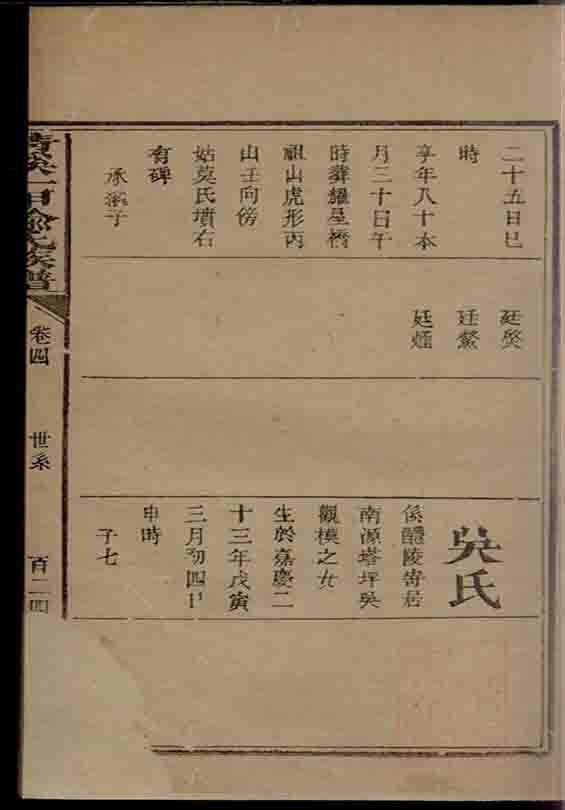 二十五日巳
時
享年八十本
月二十日午
時葬耀星橋
祖山虎形丙
山壬向傍
姑莫氏墳右
有碑
承
子
廷熒
廷鰲
廷
吳氏
係醴陵寄居
南源塔坪吳
觀模之女
生於嘉慶二
十三年戊寅
三月初四日
申時
子七
氏族譜
卷四
世系
百二四